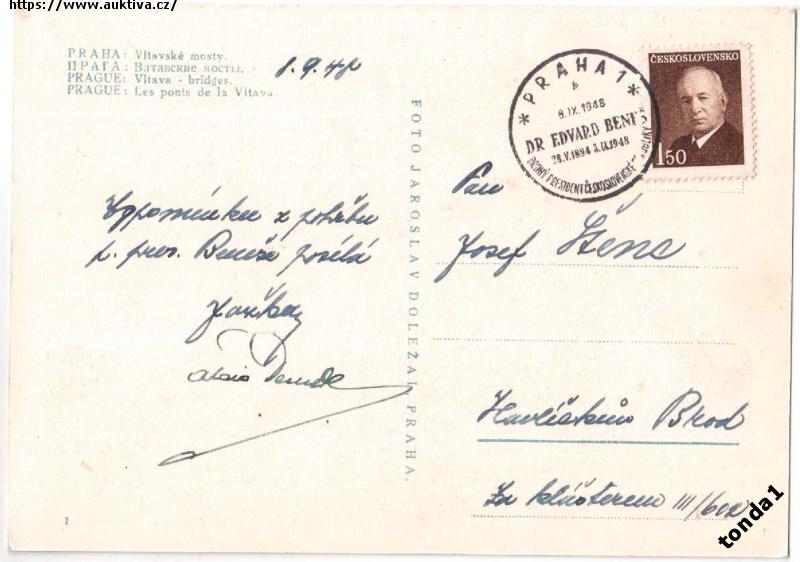 https://www.auktiva.cz/
PRAHA: Vltavské mosty.
ПРАГА: Влтавские мосты.
PRAGUE: Vltava - bridges.
PRAGUE: Les ponts de la Vltava.
8.9.48
Vzpomínku z pohřbu
p. pres. Beneše posílá
Alois
FOTO JAROSLAV DOLEŽAL, PRAHA.
2
* PRAHA 1 *
b
8.IX.1948
DR EDVARD BENEŠ
28.V.1884 3.IX.1948
DRUHÝ PRESIDENT ČESKOSLOVENSKÉ
ČESKOSLOVENSKO
1.50
Pan
Josef
Havlíčkův Brod
Za klášterem III/
tonda1